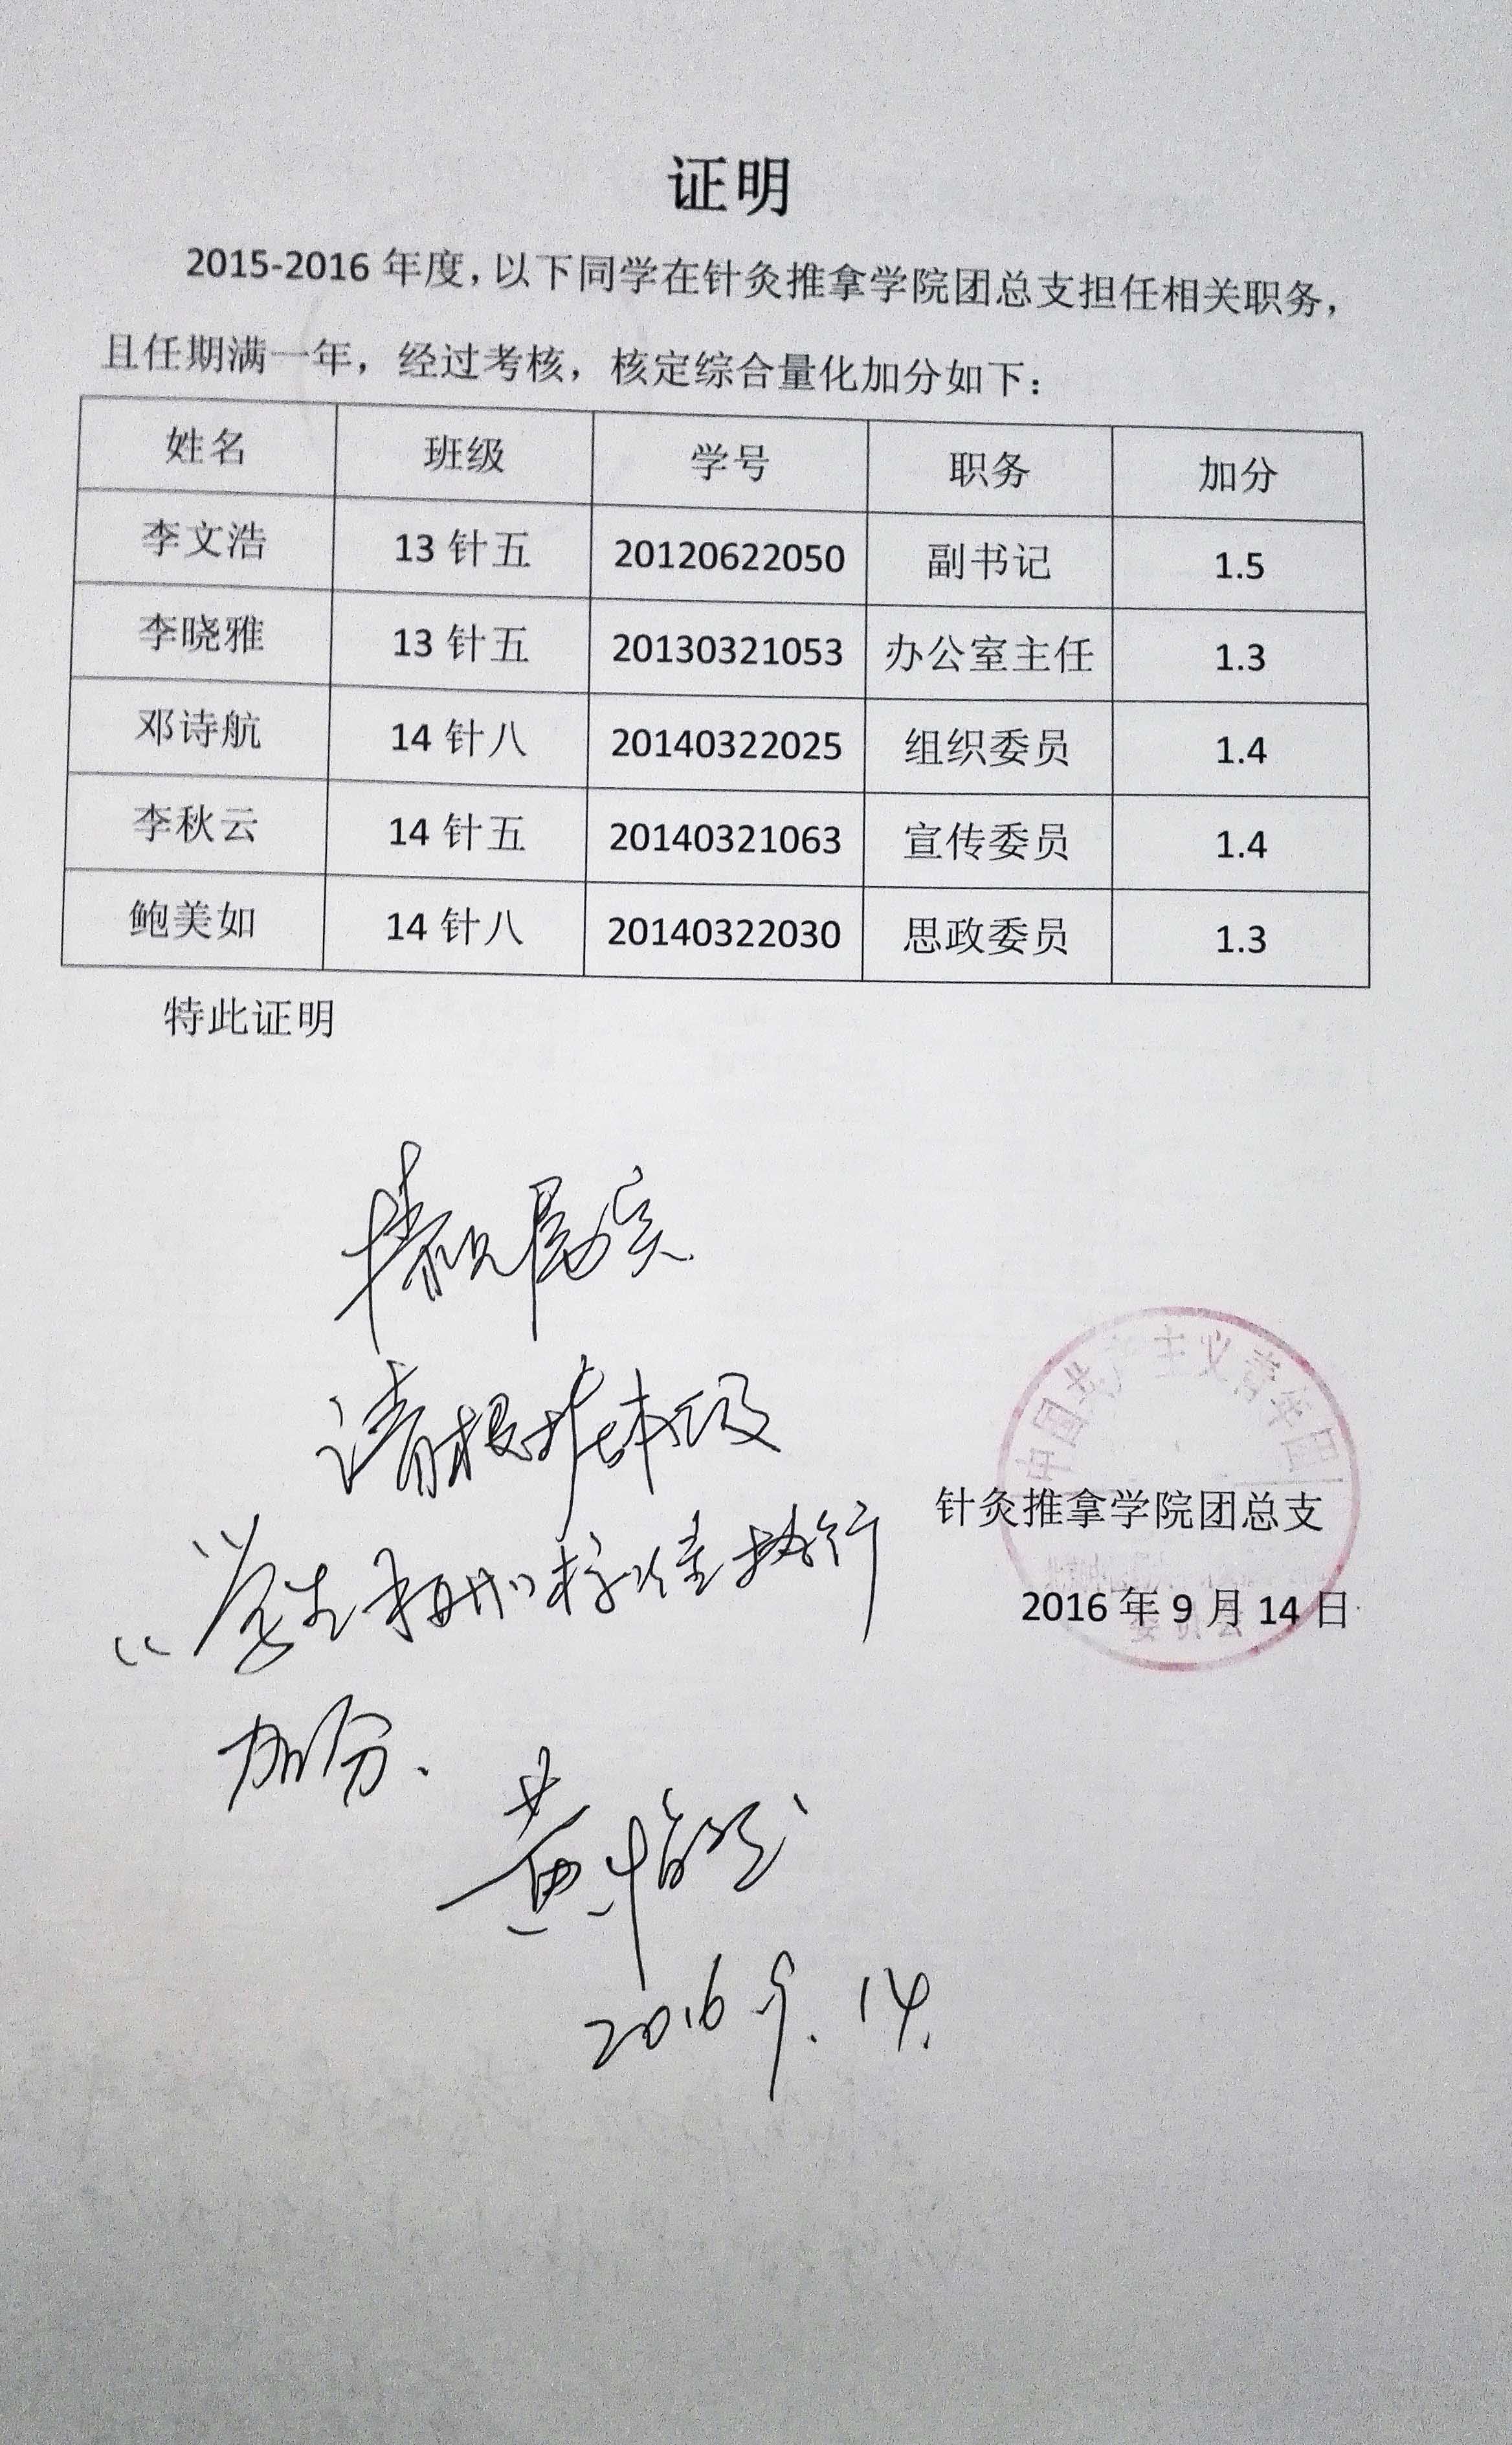 证明
2015-2016 年度，以下同学在针灸推拿学院团总支担任相关职务，
且任期满一年，经过考核，核定综合量化加分如下：
姓名 班级 学号 职务 加分
李文浩 13 针五 20120622050 副书记 1.5
李晓雅 13 针五 20130321053 办公室主任 1.3
邓诗航 14 针八 20140322025 组织委员 1.4
李秋云 14 针五 20140321063 宣传委员 1.4
鲍美如 14 针八 20140322030 思政委员 1.3
特此证明
情况属实
请根据年级
学生 标准执行
加分.
黄
2016 9. 14.
中国共产主义青年团
针灸推拿学院团总支
2016 年 9 月 14 日
委员会